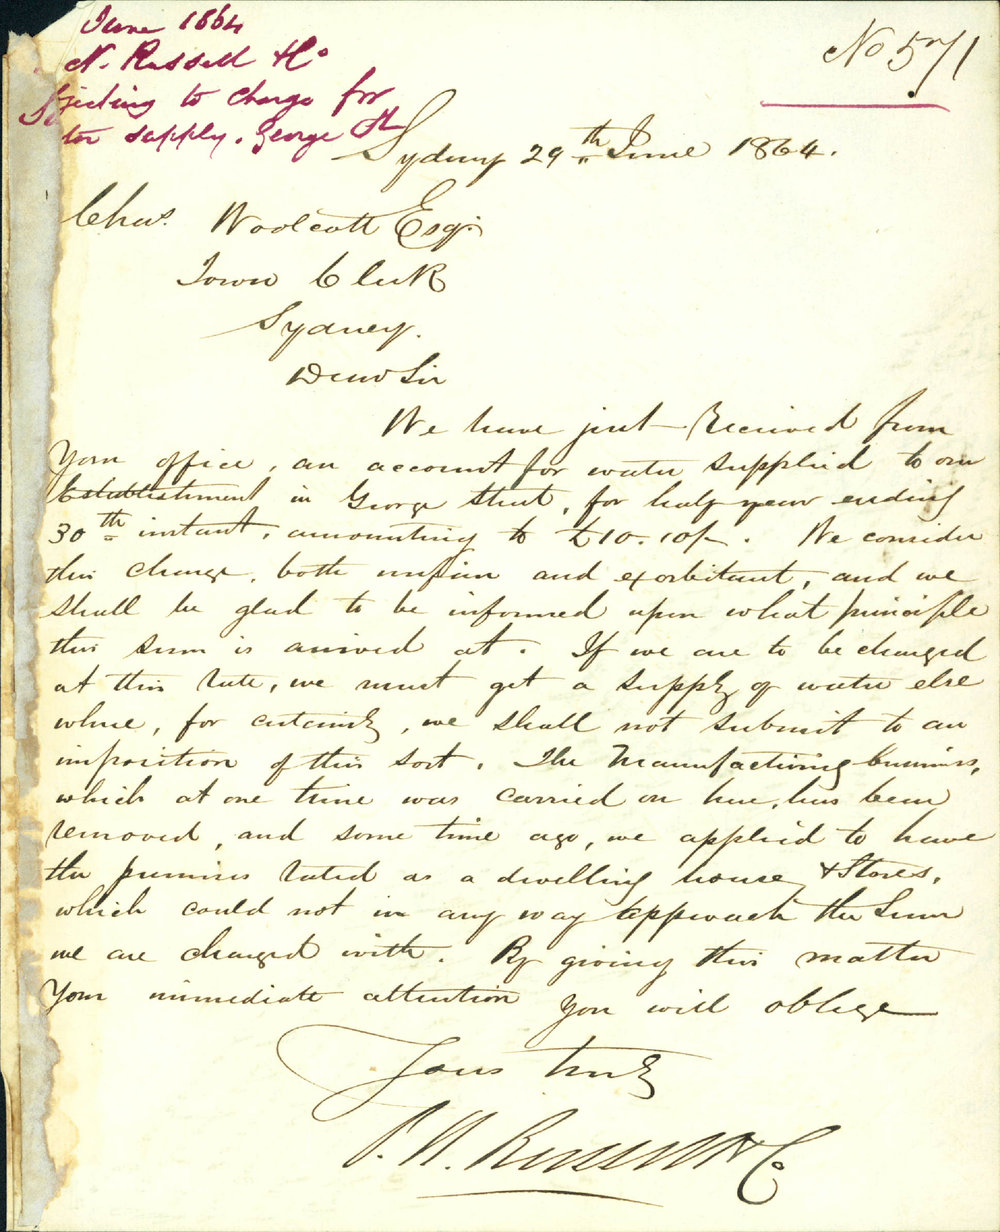 June 1864
N. Russell & Co
jecting to charge for
ter supply. George St
No 571
Sydney 29th June 1864.
Chas. Woolcott Esq.
Town Clerk
Sydney.
Dear Sir
We have just received from
your office, an account for water supplied to our
Establishment in George Street, for half year ending
30th instant, amounting to £10.10/-. We consider
this charge, both unfair and exorbitant, and we
shall be glad to be informed upon what principle
this sum is arrived at. If we are to be charged
at this rate, we must get a supply of water else
where, for certainly, we shall not submit to an
imposition of this sort. The Manufacturing business,
which at one time was carried on here, has been
removed, and some time ago, we applied to have
the premises rated as a dwelling house & Stores,
which could not in any way approach the Sum
we are charged with. By giving this matter
your immediate attention you will oblige
Yours truly
P. N. Russell & Co